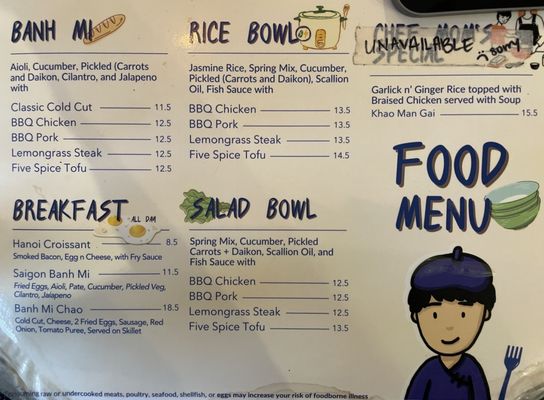 BANH MI
Aioli, Cucumber, Pickled (Carrots
and Daikon, Cilantro, and Jalapeno
with
Classic Cold Cut 11.5
BBQ Chicken 12.5
BBQ Pork 12.5
Lemongrass Steak 12.5
Five Spice Tofu 12.5
BREAKFAST ALL DAY
Hanoi Croissant 8.5
Smoked Bacon, Egg n Cheese, with Fry Sauce
Saigon Banh Mi 11.5
Fried Eggs, Aioli, Pate, Cucumber, Pickled Veg,
Cilantro, Jalapeno
Banh Mi Chao 18.5
Cold Cut, Cheese, 2 Fried Eggs, Sausage, Red
Onion, Tomato Puree, Served on Skillet
RICE BOWL
Jasmine Rice, Spring Mix, Cucumber,
Pickled (Carrots and Daikon), Scallion
Oil, Fish Sauce with
BBQ Chicken 13.5
BBQ Pork 13.5
Lemongrass Steak 13.5
Five Spice Tofu 14.5
SALAD BOWL
Spring Mix, Cucumber, Pickled
Carrots + Daikon, Scallion Oil, and
Fish Sauce with
BBQ Chicken 12.5
BBQ Pork 12.5
Lemongrass Steak 12.5
Five Spice Tofu 13.5
CHEF MOM'S
SPECIAL
UNAVAILABLE sorry
Garlick n' Ginger Rice topped with
Braised Chicken served with Soup
Khao Man Gai 15.5
FOOD
MENU
raw or undercooked meats, poultry, seafood, shellfish, or eggs may increase your risk of foodborne illness